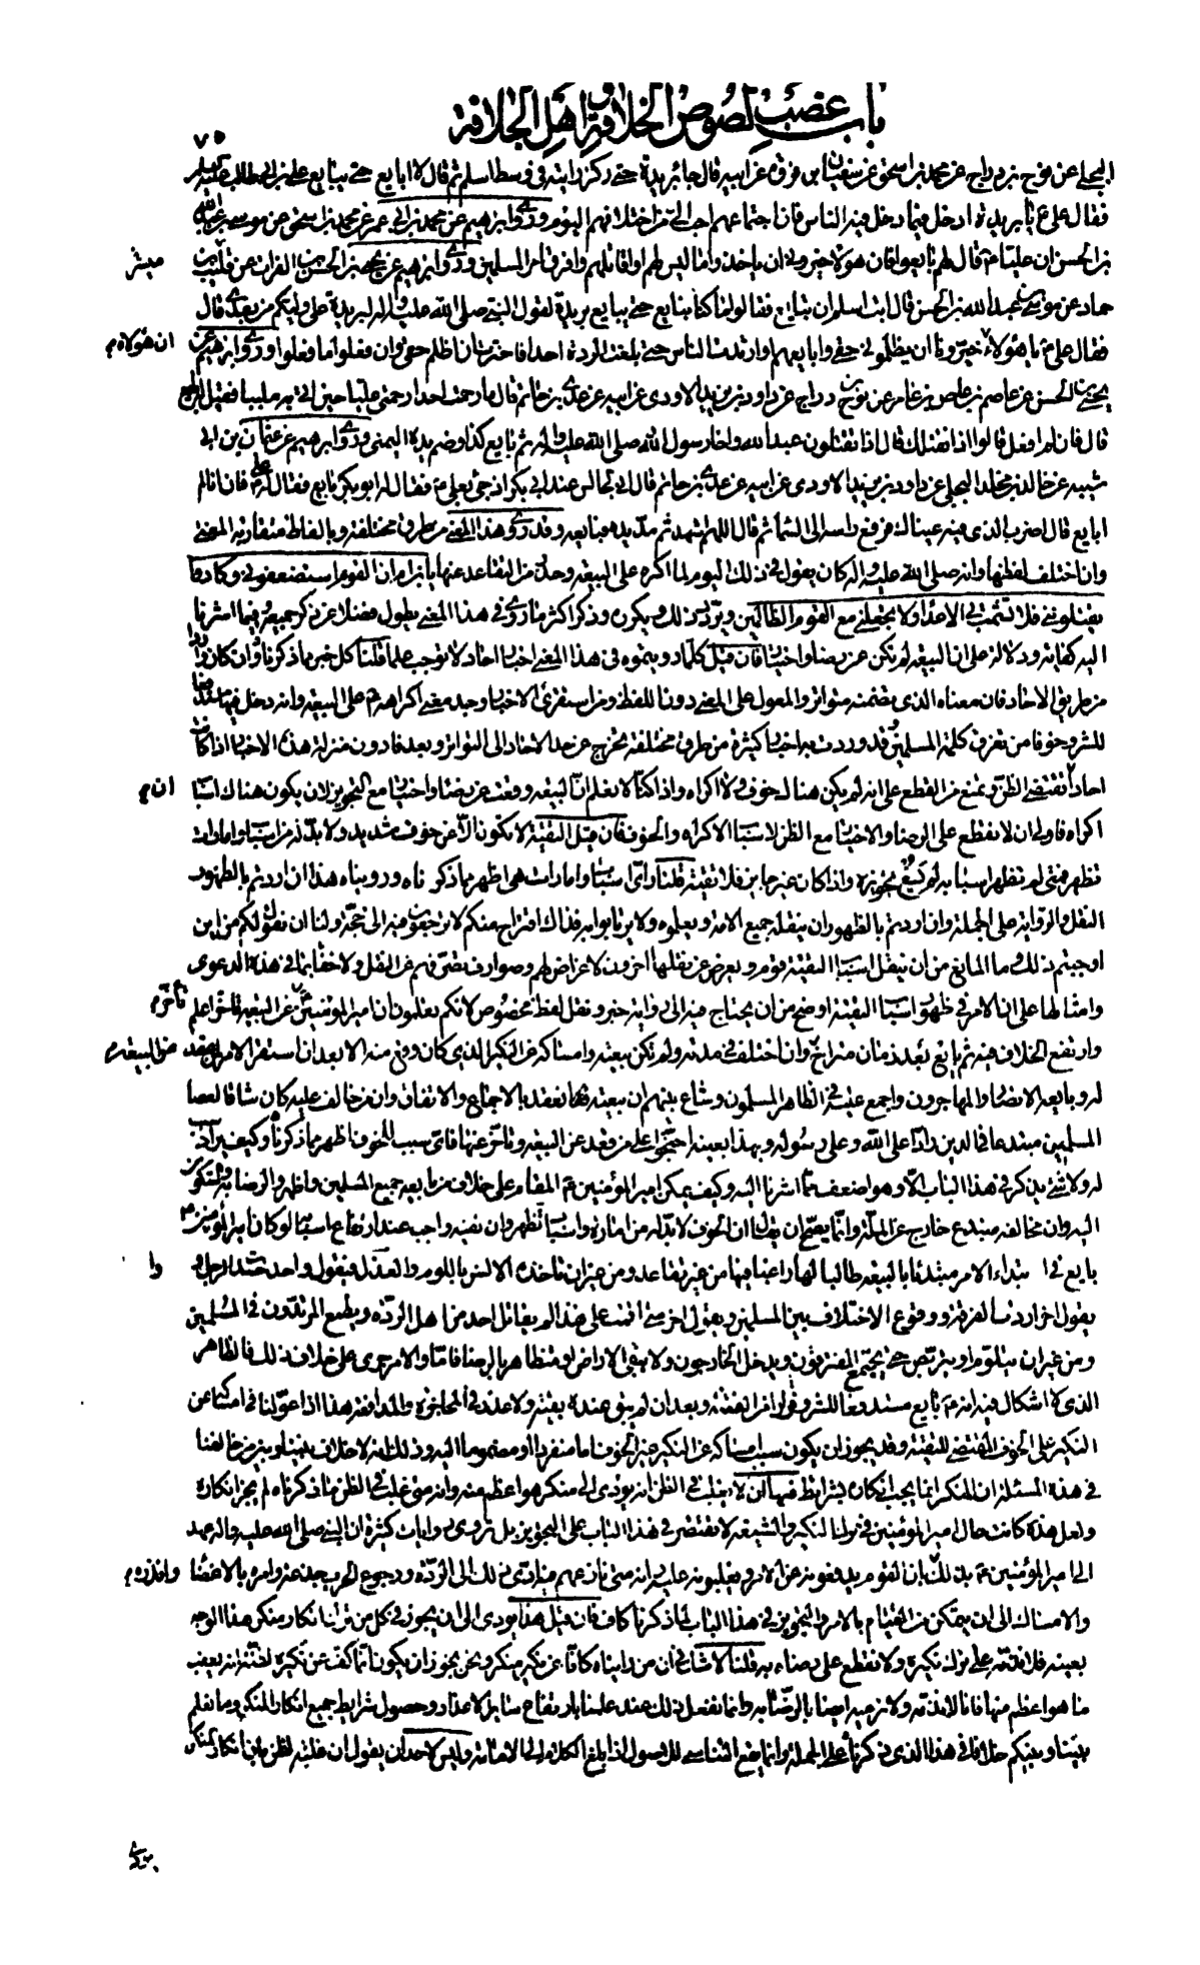 باب غصب لصوص الخلافة و اهل الجلافة
٧٥
البجلي عن نوح بن دراج عن محمد بن اسحق عن سفيان بن فروة عن ابيه قال جاء بريدة حتى ركز رايته في وسط اسلم ثم قال لا ابايع حتى يبايع علي بن ابي طالب
فقال علي ع يا بريدة ادخل فيما دخل فيه الناس فان اجتماعهم احب الي من اختلافهم اليوم وروى ابراهيم عن محمد بن ابي عمر عن محمد بن اسحق عن موسى بن عبد الله
بن الحسن ان عليا ع قال لهم بايعوا فان هؤلاء خيروني ان ياخذوا ما ليس لهم او اقاتلهم وافرق امر المسلمين وروى ابراهيم عن يحيى بن الحسن بن الفرات عن قليب بن
مبشر
حماد عن موسى بن عبد الله بن الحسن قال ابت اسلم ان تبايع فقالوا ما كنا نبايع حتى يبايع بريدة لقول النبي صلى الله عليه واله لبريدة علي وليكم من بعدي قال
فقال علي ع يا هؤلاء خيروني ان يظلموني حقي وابايعهم وارتدت الناس حتى بلغت الردة احدا فاخترت ان اظلم حقي وان فعلوا ما فعلوا وروى ابراهيم عن
ان هؤلاء م
يحيى بن الحسن عن عاصم بن عامر عن نوح بن دراج عن داود بن يزيد الاودي عن ابيه عن عدي بن حاتم قال ما رحمت احدا رحمتي عليا حين اتي به ملببا فقيل له بايع
قال فان لم افعل قالوا اذا نقتلك قال اذا تقتلون عبد الله واخا رسول الله صلى الله عليه واله ثم بايع كذا وضم يده اليمنى وروى ابراهيم عن عثمان بن ابي
شيبه عن خالد بن مخلد البجلي عن داود بن يزيد الاودي عن ابيه عن عدي بن حاتم قال اني لجالس عند ابي بكر اذ جيء بعلي ع فقال له ابو بكر بايع فقال له علي ع فان انا لم
ابايع قال اضرب الذي فيه عيناك فرفع راسه الى السماء ثم قال اللهم اشهد ثم مد يده فبايعه وقد روي هذا المعنى من طرق مختلفة وبالفاظ متقاربة المعنى
وان اختلف لفظها وانه صلى الله عليه واله كان يقول في ذلك اليوم لما اكره على البيعة وحذر من التقاعد عنها يا بن ام ان القوم استضعفوني وكادوا
يقتلونني فلا تشمت بي الاعداء ولا تجعلني مع القوم الظالمين ويردد ذلك ويكرره وذكر اكثر ما روي في هذا المعنى يطول فضلا عن ذكر جميعه وفيما اشرنا
اليه كفاية ودلالة على ان البيعة لم تكن عن رضا واختيار فان قيل كلما رويتموه في هذا المعنى اخبار احاد لا توجب علما قلنا كل خبر مما ذكرناه وان كان واردا
من طريق الاحاد فان معناه الذي تضمنه متواتر والمعول على المعنى دون اللفظ ومن استقرى الاخبار وجد معنى اكراهه ع على البيعة وانه دخل فيها
للشر وخوفا من تفرق كلمة المسلمين وقد وردت به اخبار كثيرة من طرق مختلفة تخرج عن حد الاحاد الى التواتر وبعد فادون منزلة هذه الاخبار اذا كانت
احادا ان تقتضي الظن وتمنع من القطع على انه لم يكن هناك خوف ولا اكراه واذا كنا لا نعلم ان البيعة وقعت عن رضا واختيار مع التجويز لان يكون هناك اسباب
ان م
اكراه فاولى ان لا نقطع على الرضا والاختيار مع الظن لاسباب الاكراه والخوف فان قيل التقية لا تكون الا عن خوف شديد ولا بد له من اسباب وامارات
تظهر فمتى لم تظهر اسبابه لم يسغ تجويزه واذا كان غير جايز فلا تقية قلنا واي اسباب وامارات هي اظهر مما ذكرناه ورويناه هذا ان اردتم بالظهور
النقل والرواية على الجملة وان اردتم بالظهور ان ينقله جميع الامة ويعلموه ولا يرتابوا به فذاك اقتراح منكم لا ترجعون فيه الى حجة ولنا ان نقول لكم من اين
اوجبتم ذلك وما المانع من ان ينقل اسباب التقية قوم ويعرض عن نقلها اخرون لاغراض لهم وصوارف تصرفهم عن النقل ولا خفاء بما في هذه الدعوى
وامثالها على ان الامر في ظهور اسباب التقية اوضح من ان يحتاج فيه الى رواية خبر ونقل لفظ مخصوص لانكم تعلمون ان امير المؤمنين ع تاخر عن البيعة تاخرا علم
تأخره
وارتفع الخلاف فيه ثم بايع بعد زمان متراخ وان اختلف في مدته ولم تكن بيعته وامساكه عن النكير الذي كان وقع منه الا بعد ان استقر الامر لمن عقد
من البيعة م
له وبايعه الانصار والمهاجرون واجمع عليه في الظاهر المسلمون وشاع بينهم ان بيعته انعقدت بالاجماع والاتفاق وان من خالف عليه كان شاقا لعصا
المسلمين مبتدعا في الدين رادا على الله وعلى رسوله وبهذا بعينه احتجوا على من قعد عن البيعة وتاخر عنها فاي سبب للخوف اظهر مما ذكرناه وكيف يراد سبب
له ولا شيء يذكر في هذا الباب الا وهو اضعف مما اشرنا اليه وكيف يمكن امير المؤمنين ع المقام على خلاف من بايعه جميع المسلمين واظهروا الرضا به والسكون
اليه وان مخالفه مبتدع خارج عن الملة وانما يصح ان يقال ان الخوف لا بد له من امارة واسباب تظهر وان نفيه واجب عند ارتفاع اسبابه لو كان امير المؤمنين ع
بايع في ابتداء الامر مبتدئا بالبيعة طالبا لها راغبا فيها من غير تقاعد ومن غير ان تاخذه الالسن باللوم والعذل فيقول واحد حسدت الرجل و
وا
يقول اخر اردت الفرقة ووقوع الاختلاف بين المسلمين ويقول اخر متى اقمت على هذا لم يقاتل احد من اهل الردة ويطمع المرتدون في المسلمين
ومن غير ان يتلوم او يتربص حتى يجتمع المتفرقون ويدخل الخارجون ولا يبقى الا راض او متظاهر بالرضا فاما والامر جرى على خلاف ذلك فالظاهر
الذي لا اشكال فيه انه ع بايع مستدفعا للشر وفرارا من الفتنة وبعد ان لم يبق عنده بقية ولا عذر في المحاجزة والمدافعة هذا اذا عولنا في امساكه عن
النكير على الخوف المقتضي للتقية وقد يجوز ان يكون سبب امساكه عن النكير غير الخوف اما منفردا او مضموما اليه وذلك انه لا خلاف بيننا وبين من خالفنا
في هذه المسئلة ان المنكر انما يجب انكاره بشرايط منها ان لا يغلب في الظن انه يؤدي الى منكر هو اعظم منه وانه متى غلب في الظن ما ذكرناه لم يجز انكاره
ولعل هذه كانت حال امير المؤمنين في ترك النكير والشيعة لا تقتصر في هذا الباب على التجويز بل تروي روايات كثيرة ان النبي صلى الله عليه واله عهد
الى امير المؤمنين ع بذلك بان القوم يدفعونه عن الامر ويغلبونه عليه وانه متى نازعهم فيه ادى ذلك الى الردة ورجوع الحرب جذعة وامره بالاغضاء
وانذره م
والامساك الى ان يتمكن من القيام بالامر والتجويز في هذا الباب لما ذكرناه كاف فان قيل هذا يؤدي الى ان يجوز في كل من ترك انكار منكر هذا الوجه
بعينه فلا نذمه على ترك نكيره ولا نقطع على رضاه به قلنا لا شك في ان من رايناه كافا عن نكير منكر ونحن نجوز ان يكون انما كف عن نكيره لظنه انه يعقب
ما هو اعظم منه فانا لا نذمه ولا نرميه ايضا بالرضا به وانما نفعل ذلك عند علمنا بارتفاع ساير الاعذار وحصول شرايط جميع انكار المنكر وما نعلم
بيننا وبينكم خلافا في هذا الذي ذكرناه على الجملة وانما يقع التناسي للاصول اذا بلغ الكلام الى الامامة وليس لاحد ان يقول ان غلبة الظن بان انكار المنكر